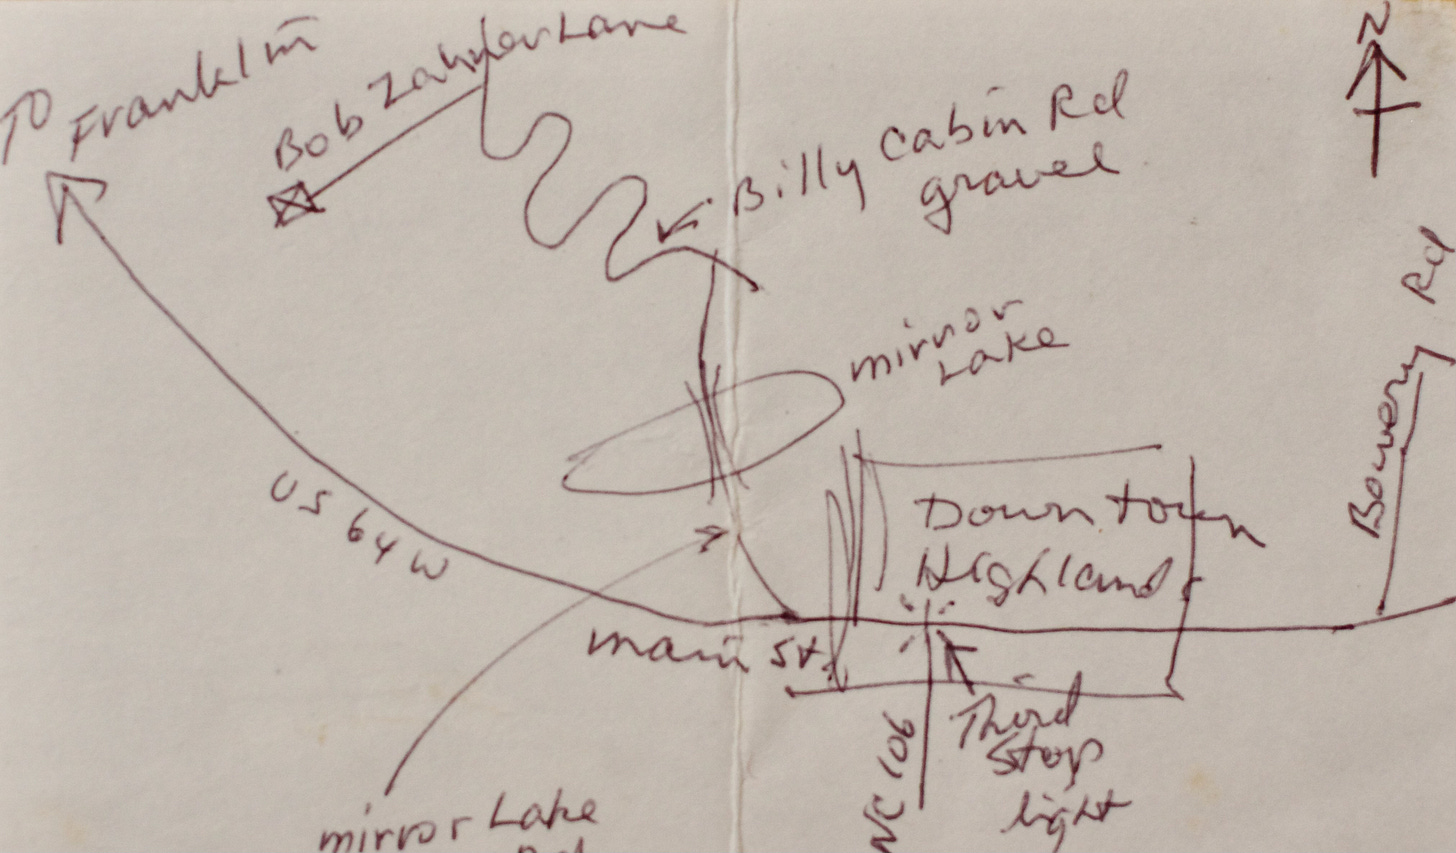 TO Franklin
Bob Zahner Lane
N
Billy Cabin Rd
gravel
mirror
Lake
Bowery Rd
US 64 W
Downtown
Highlands
main St.
NC 106
Third
Stop
light
mirror Lake
Rd